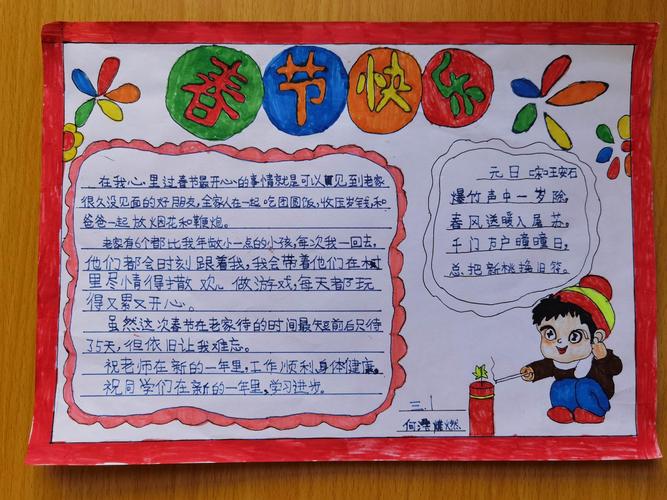 春节快乐
在我心里过春节最开心的事情就是可以见到老家
很久没见面的好朋友,全家人在一起吃团圆饭,收压岁钱,和
爸爸一起放烟花和鞭炮。
老家有6个都比我年龄小一点的小孩,每次我一回去,
他们都会时刻跟着我,我会带着他们在村
里尽情得撒欢 做游戏,每天都玩
得又累又开心。
虽然这次春节在老家待的时间最短前后只待
35天,但依旧让我难忘。
祝老师在新的一年里,工作顺利,身体健康。
祝同学们在新的一年里,学习进步。
元日 宋 王安石
爆竹声中一岁除,
春风送暖入屠苏,
千门万户曈曈日,
总把新桃换旧符。
三.1
何 燃